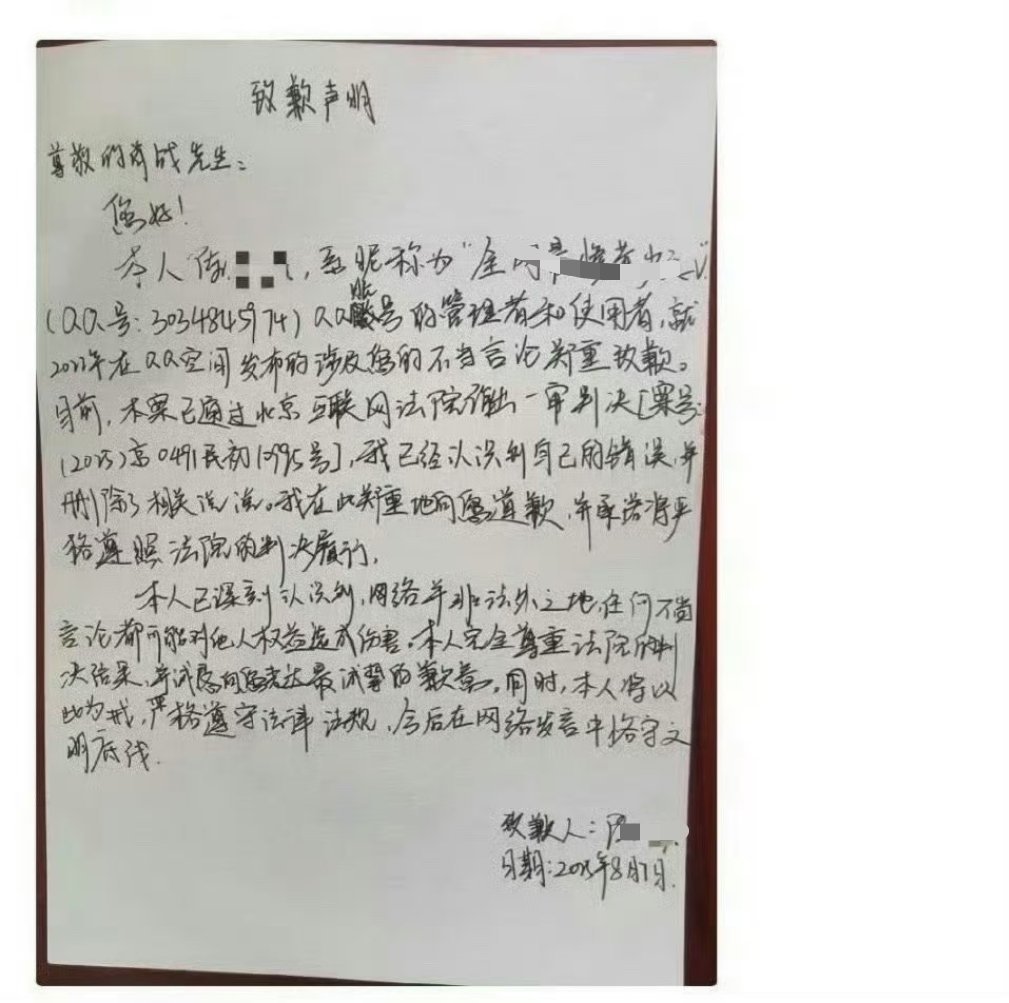 致歉声明
尊敬的肖战先生：
您好！
本人陈，系昵称为“全
（QQ号：3034845974）QQ账号的管理者和使用者，就
2022年在QQ空间发布的涉及您的不当言论郑重致歉。
目前，本案已通过北京互联网法院作出一审判决［案号：
（2025）京0491民初12995号］，我已经认识到自己的错误，并
删除了相关说说。我在此郑重地向您道歉，并承诺将严
格遵照法院的判决履行。
本人已深刻认识到，网络并非法外之地，任何不当
言论都可能对他人权益造成伤害。本人完全尊重法院的判
决结果，并诚恳向您表达最诚挚的歉意。同时，本人将以
此为戒，严格遵守法律法规，今后在网络发言中恪守文
明底线.
致歉人：陈
日期：2025年8月7日.